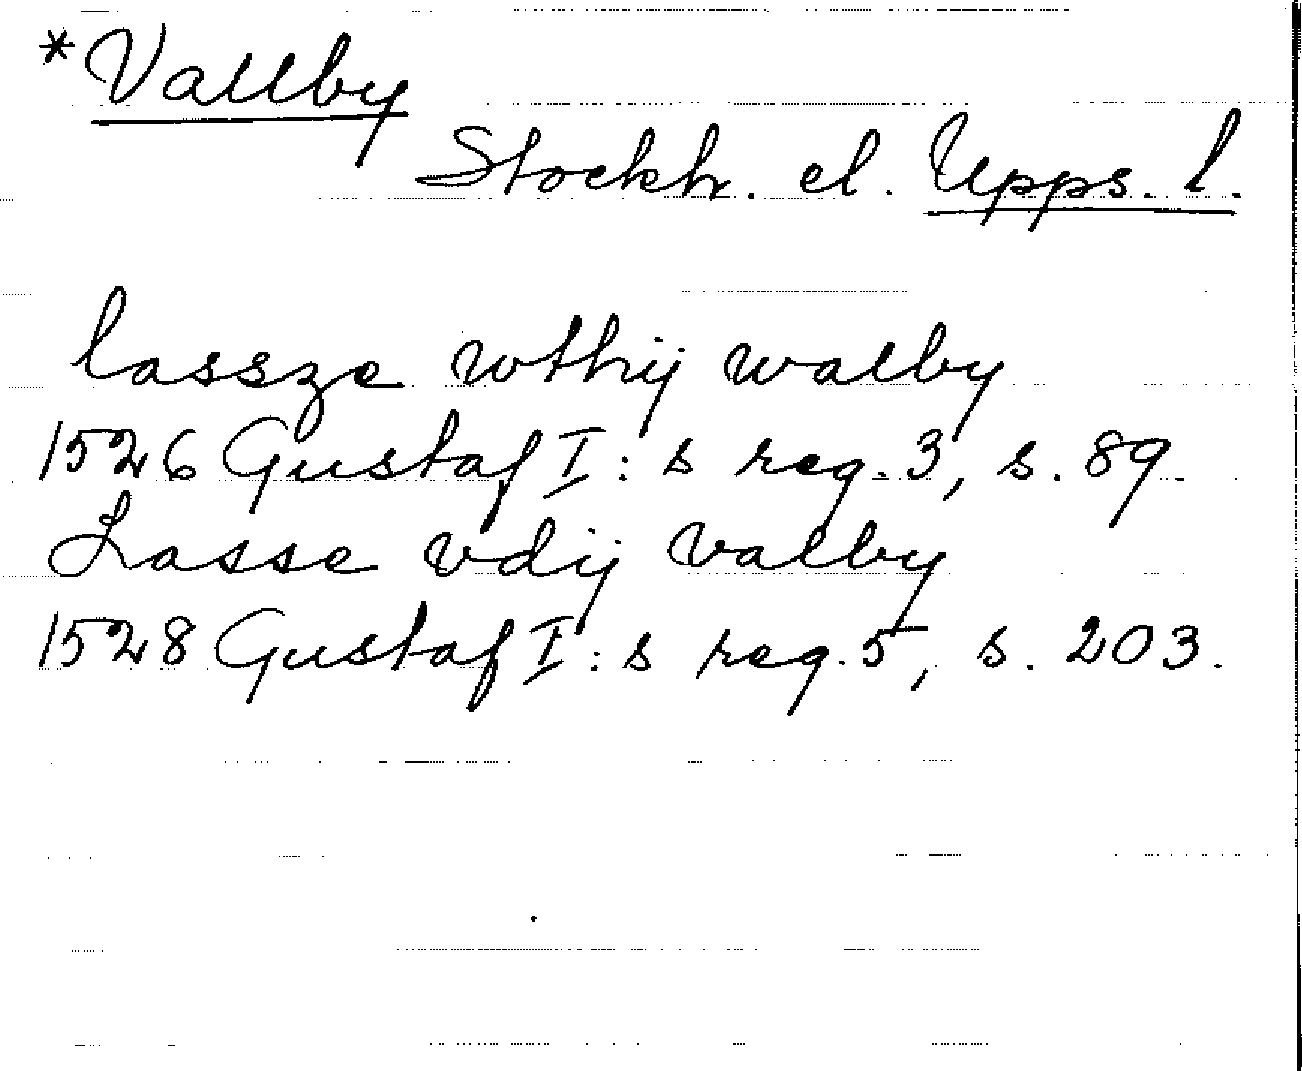 *Vallby
Stockh. el. Upps. l.
lassze wthij walby
1526 Gustaf I:s reg. 3, s. 89.
Lasse vdij valby
1528 Gustaf I:s reg. 5, s. 203.